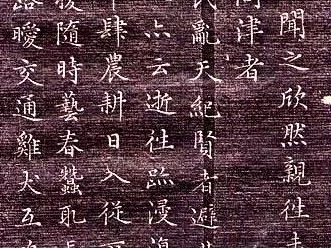 聞之欣然親徃
問津者
氏亂天紀賢者避
亦云逝徃跡漫
肆農耕日入從
稷隨時藝春蠶耴
路曖交通雞犬互